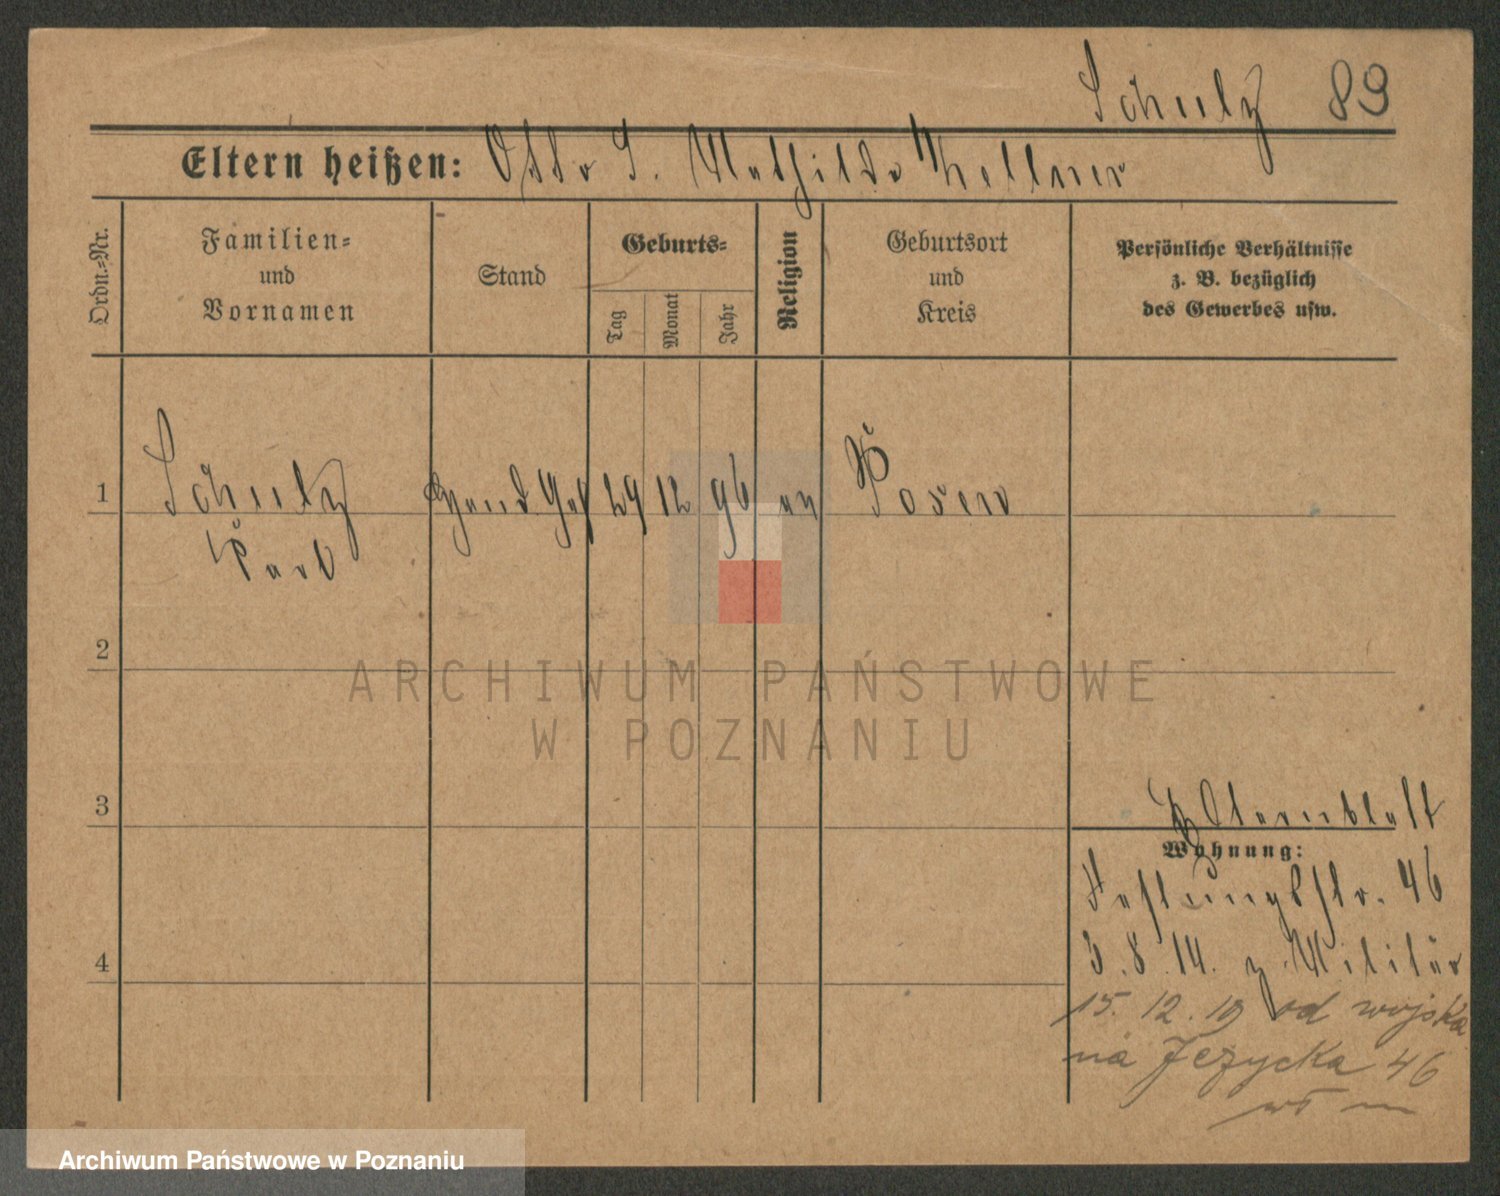 Schulz 89
Eltern heißen: Otto S. Mathilde Kellner
Ordn.-Nr.
Familien-
und
Vornamen
Stand
Geburts-
Tag
Monat
Jahr
Religion
Geburtsort
und
Kreis
Persönliche Verhältnisse
z. B. bezüglich
des Gewerbes usw.
1 Schulz Hand Geh 29 12 96 ev Posen
Karl
2
ARCHIWUM PAŃSTWOWE
W POZNANIU
3
Wohnung:
Festungsstr. 46
4 3.8.14. z. Militär
15.12.19 od wojska
na Jezycka 46
Archiwum Państwowe w Poznaniu